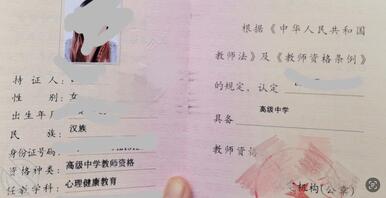 持证人:
性 别: 女
出生年
民 族: 汉族
身份证号码
资格种类: 高级中学教师资格
任教学科: 心理健康教育
根据《中华人民共和国
教师法》及《教师资格条例》
的规定, 认定
高级中学
具备
教师资
机构(公章)